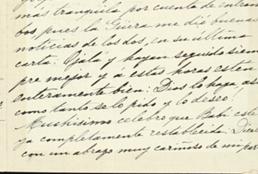 más tranquila por cuenta de
bos, pues la me dió buenas
noticias de los dos, en su última
carta. Ojalá y hayan seguido siem
pre mejor y a estas horas estén
enteramente bien: Dios lo haga así
como tanto se lo pido y lo deseo!
Muchísimo celebro que Babi esté
ya completamente restablecida.
con un abrazo muy cariñoso de mi